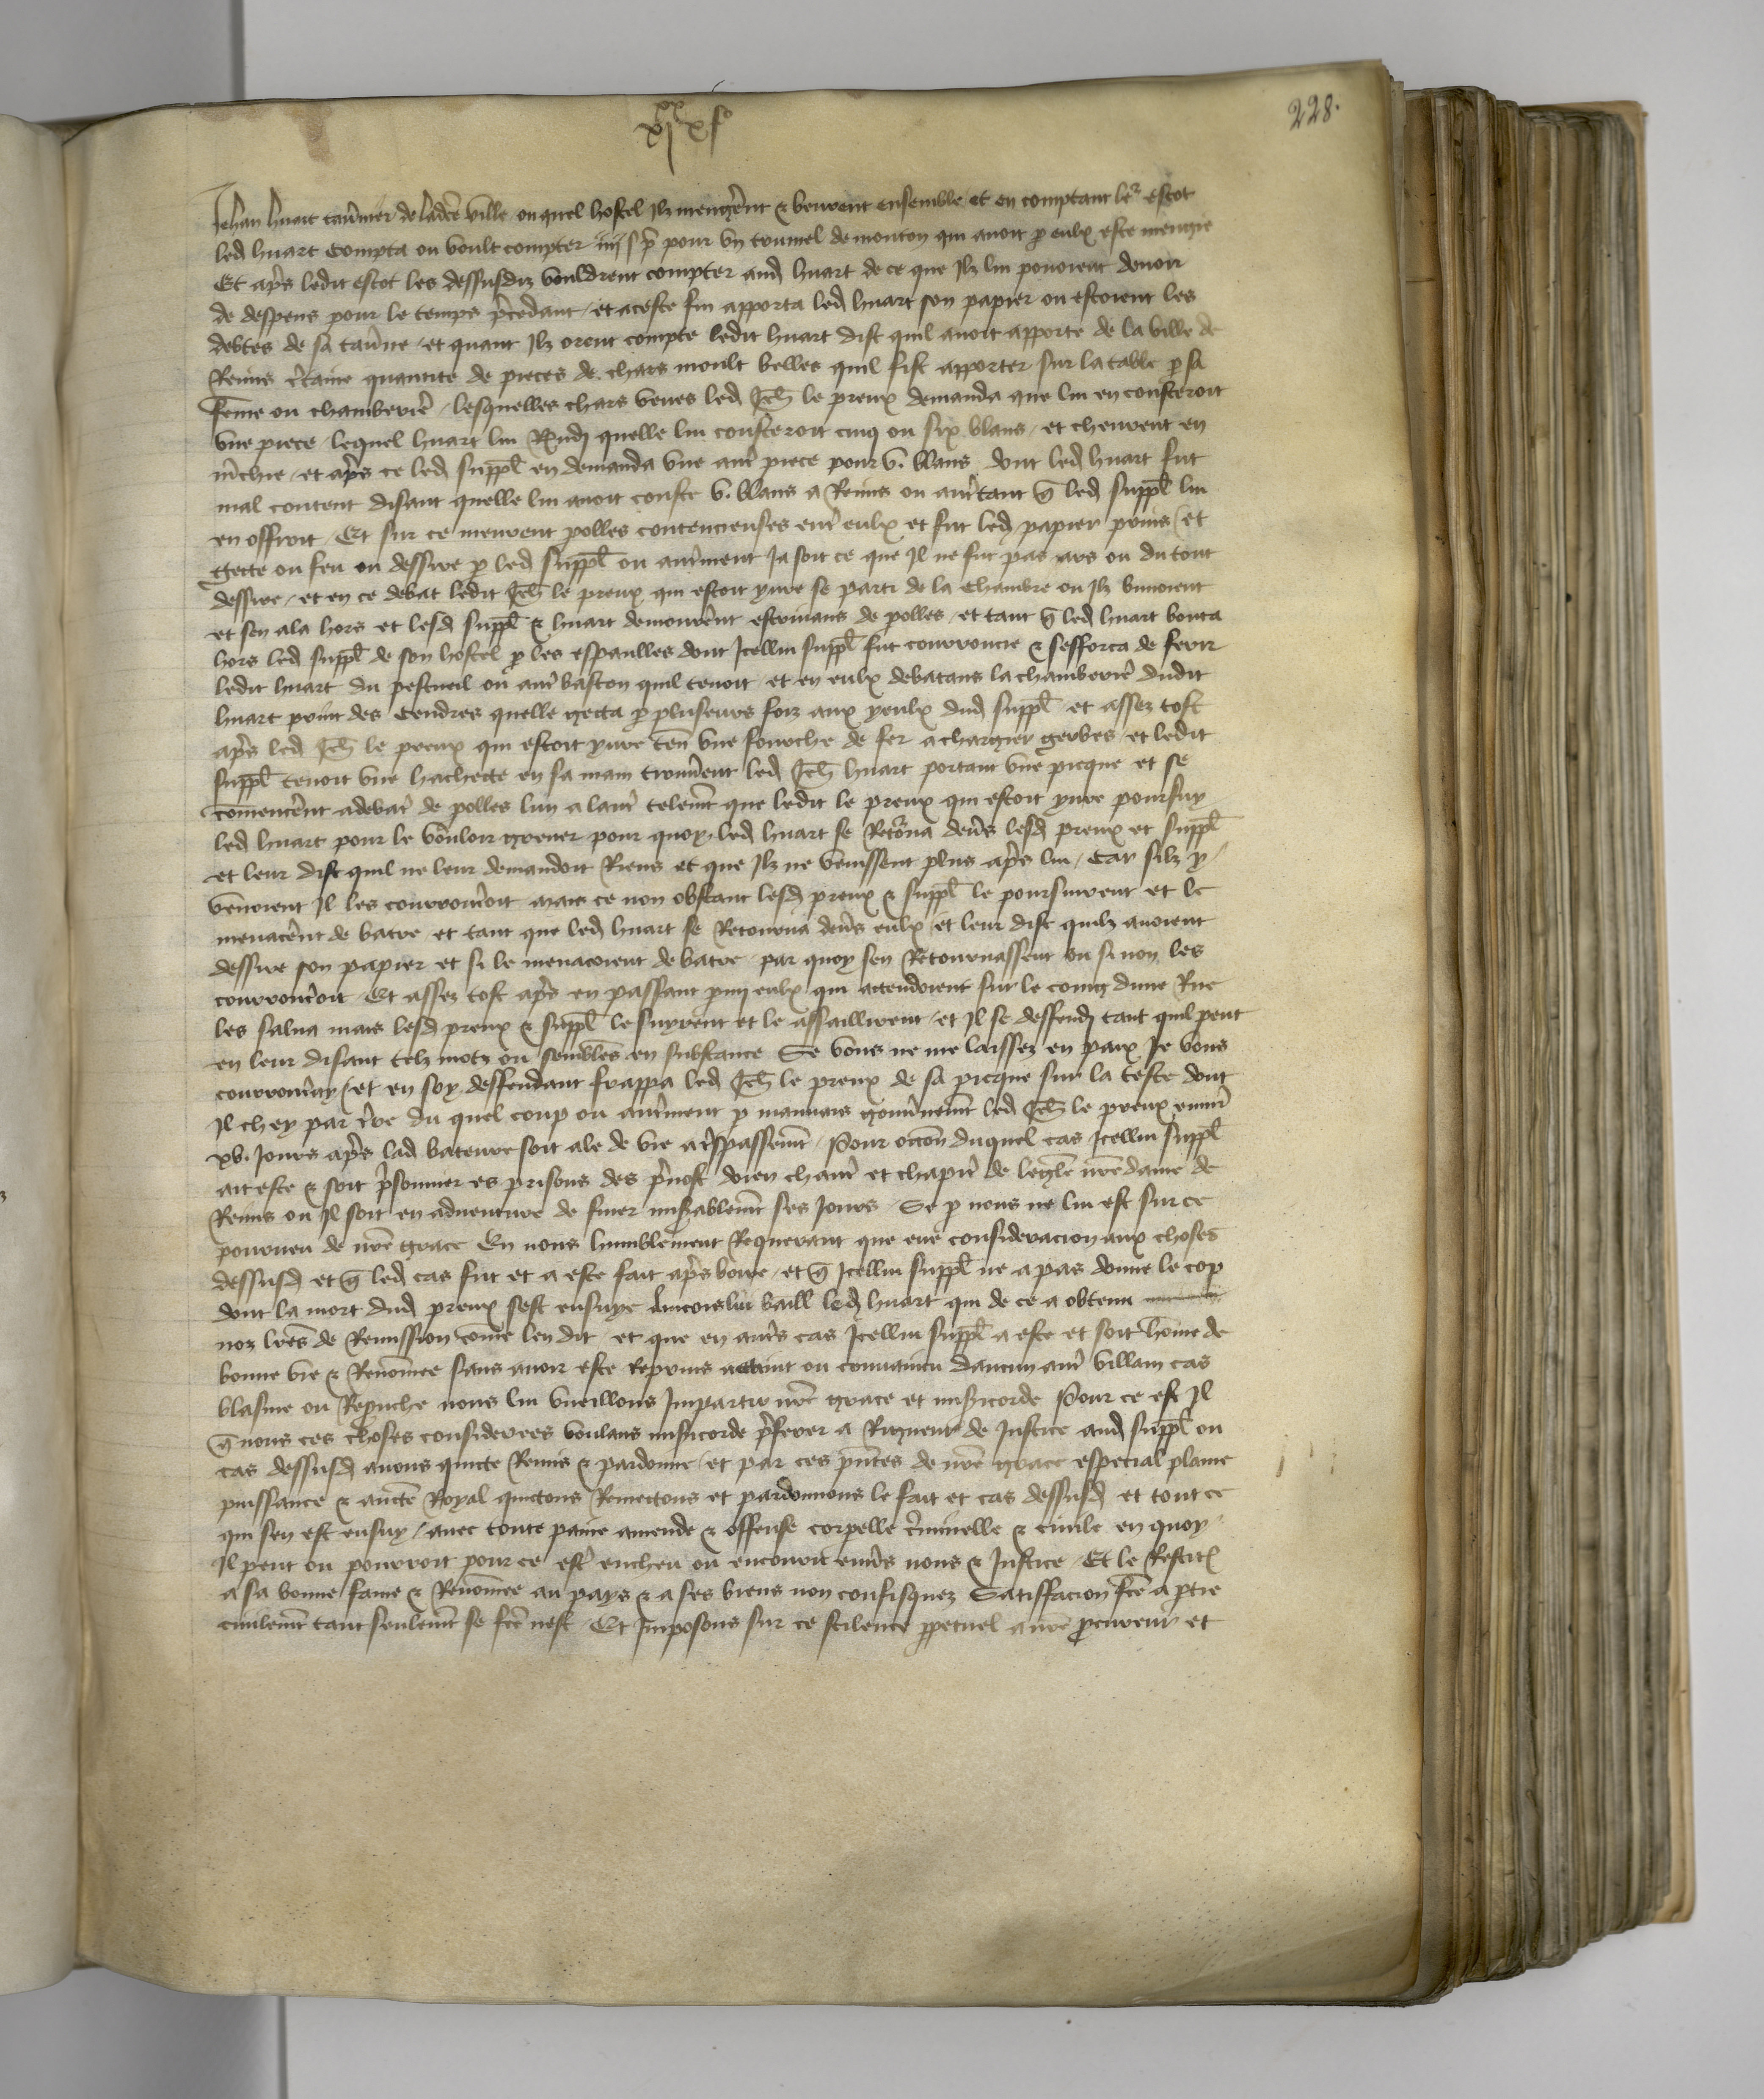 228.
Jehan huart tauernier de ladce ville ou quel hostel Ilz mengerent & beurent ensemble et en comptant ler escot
led huart compta ou voult compter iiij s p pour vn trumel de mouton qui auoit p eulx este mengie
Et apres ledit escot les dessusdiz vouldrent compter aud huart de ce que Ilz lui pouoient deuoir
de despens pour le temps precedant et aceste fin apporta led huart son papier ou estoient les
debtes de sa tauerne et quant Ilz orent compte ledit huart dist quil auoit apporte de la ville de
Reims certaine quantite de pieces de chars moult belles quil fist apporter sur la table p sa
feme ou chamberiere lesquelles chars veues led Jeh le preux demanda que lui en cousteroit
vne piece lequel huart lui Rendi quelle lui cousteroit cinq ou six blans et cheurent en
merchie et apres ce led suppl en demanda vne autre piece pour v. blans dont led huart fut
mal content disant quelle lui auoit couste v. blans a Reims ou autant q led suppl lui
en offroit Et sur ce meurent polles contencieuses entre eulx et fut led papier prins et
gecte ou feu ou dessire p led suppl ou autrement Ja soit ce que Il ne fut pas ars ou du tout
dessire et en ce debat ledit Jeh le preux qui estoit yure se parti de la chambre ou Ilz buuoient
et sen ala hors et lesd suppl & huart demourerent estriuans de polles et tant q led huart bouta
hors led suppl de son hostel p les espaulles dont Icellui suppl fut courroucie & sefforca de ferir
ledit huart du pestueil ou autre baston quil tenoit et en eulx debatans la chamberiere dudit
huart print des cendres quelle gecta p pluseurs foiz aux yeulx dud suppl et assez tost
apres led Jeh le preux qui estoit yure tenant vne fourche de fer a chargier gerbes et ledit
suppl tenoit vne hachecte en sa main trouuerent led Jeh huart portant vne picque et se
comencerent a debatre de polles lun a lautre telement que ledit le preux qui estoit yure poursuy
led huart pour le vouloir greuer pour quoy led huart se Retorna deuers lesd preux et suppl
et leur dist quil ne leur demandoit Riens et que Ilz ne venissent plus apres lui Car silz y
venoient Il les courrouceroit mais ce non obstant lesd preux & suppl le poursuirent et le
menacerent de batre et tant que led huart se Retourna deuers eulx et leur dist quilz auoient
dessire son papier et si le menacoient de batre par quoy sen Retournassent ou si non les
courrouceroit Et assez tost apres en passant pmy eulx qui attendoient sur le coing dune Rue
les salua mais lesd preux & suppl le suyrent et le assaillirent et Il se deffendi tant quil peut
en leur disant telz motz ou semblables en substance Se vous ne me laissez en paix Je vous
courrouceray et en soy deffendant frappa led Jeh le preux de sa picque sur la teste dont
Il chey par terre du quel coup ou autrement p mauuais gouuernement led Jeh le preux enuiron
xv. Jours apres lad bateure soit ale de vie a trespassement Pour occon duquel cas Icellui suppl
ait este & soit prisonnier es prisons des preuost doien chantre et chapitre de leglise nre dame de
Reims ou Il soit en aduenture de finer miserablement ses Jours Se p nous ne lui est sur ce
pourueu de nre grace En nous humblement Requerant que eue consideracion aux choses
dessusd et q led cas fut et a este fait apres boire et q Icellui suppl ne a pas donne le cop
dont la mort dud preux sest ensuye Aincois lui bailla led huart qui de ce a obtenu
noz lres de Remission come len dit et que en autres cas Icellui suppl a este et soit home de
bonne vie & Renomee sans auoir este reprins attaint ou conuaincu daucun autre villain cas
blasme ou Reprouche nous lui vueillons Impartir nre grace et misericorde Pour ce est Il
q nous ces choses considerees voulans misericorde preferer a Rigueur de Justice aud suppl ou
cas dessusd auons quicte Remis & pardonne et par ces pntes de nre grace especial plaine
puissance & aucte Royal quictons Remectons et pardonnons le fait et cas dessusd et tout ce
qui sen est ensuy auec toute paine amende & offense corpelle criminelle & ciuile en quoy
Il peut ou pourroit pour ce estre encheu ou encouru enuers nous & Justice Et le Restit
a sa bonne fame & Renomee au pays & a ses biens non confisquez Satisfacion fce a ptie
ciuilement tant seulement se fce nest Et Imposons sur ce silence ppetuel a nre procureur et